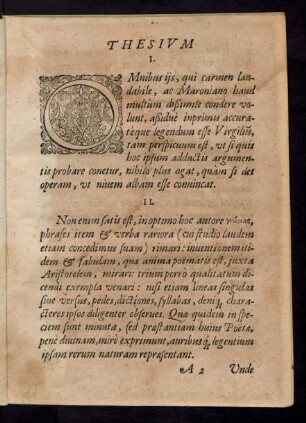 THESIVM
I.
OMnibus ijs, qui carmen lau-
dabile, ac Maroniano haud
multùm dissimile condere vo-
lunt, assiduè inprimis accura-
teque legendum esse Virgiliũ,
tam perspicuum est, vt si quis
hoc ipsum adductis argumen-
tis probare conetur, nihilo plus agat, quàm si det
operam, vt niuem albam esse conuincat.
II.
Non enim satis est, in optimo hoc autore
phrases item & verba rariora (cui studio laudem
etiam concedimus suam) rimari: inuentionem iti-
dem & fabulam, quæ anima poëmatis est, juxta
Aristotelem, mirari: trium porrò qualitatum di-
cendi exempla venari: nisi etiam lineas singulas
siue versus, pedes, dictiones, syllabas, demq́, chara-
cteres ipsos diligenter obserues. Quæ quidem in spe-
ciem sunt minuta, sed præstantiam huius Poëtæ,
penè diuinam, mirè exprimunt, auribusq́, legentium
ipsam rerum naturam repræsentant.
A 2 Vnde